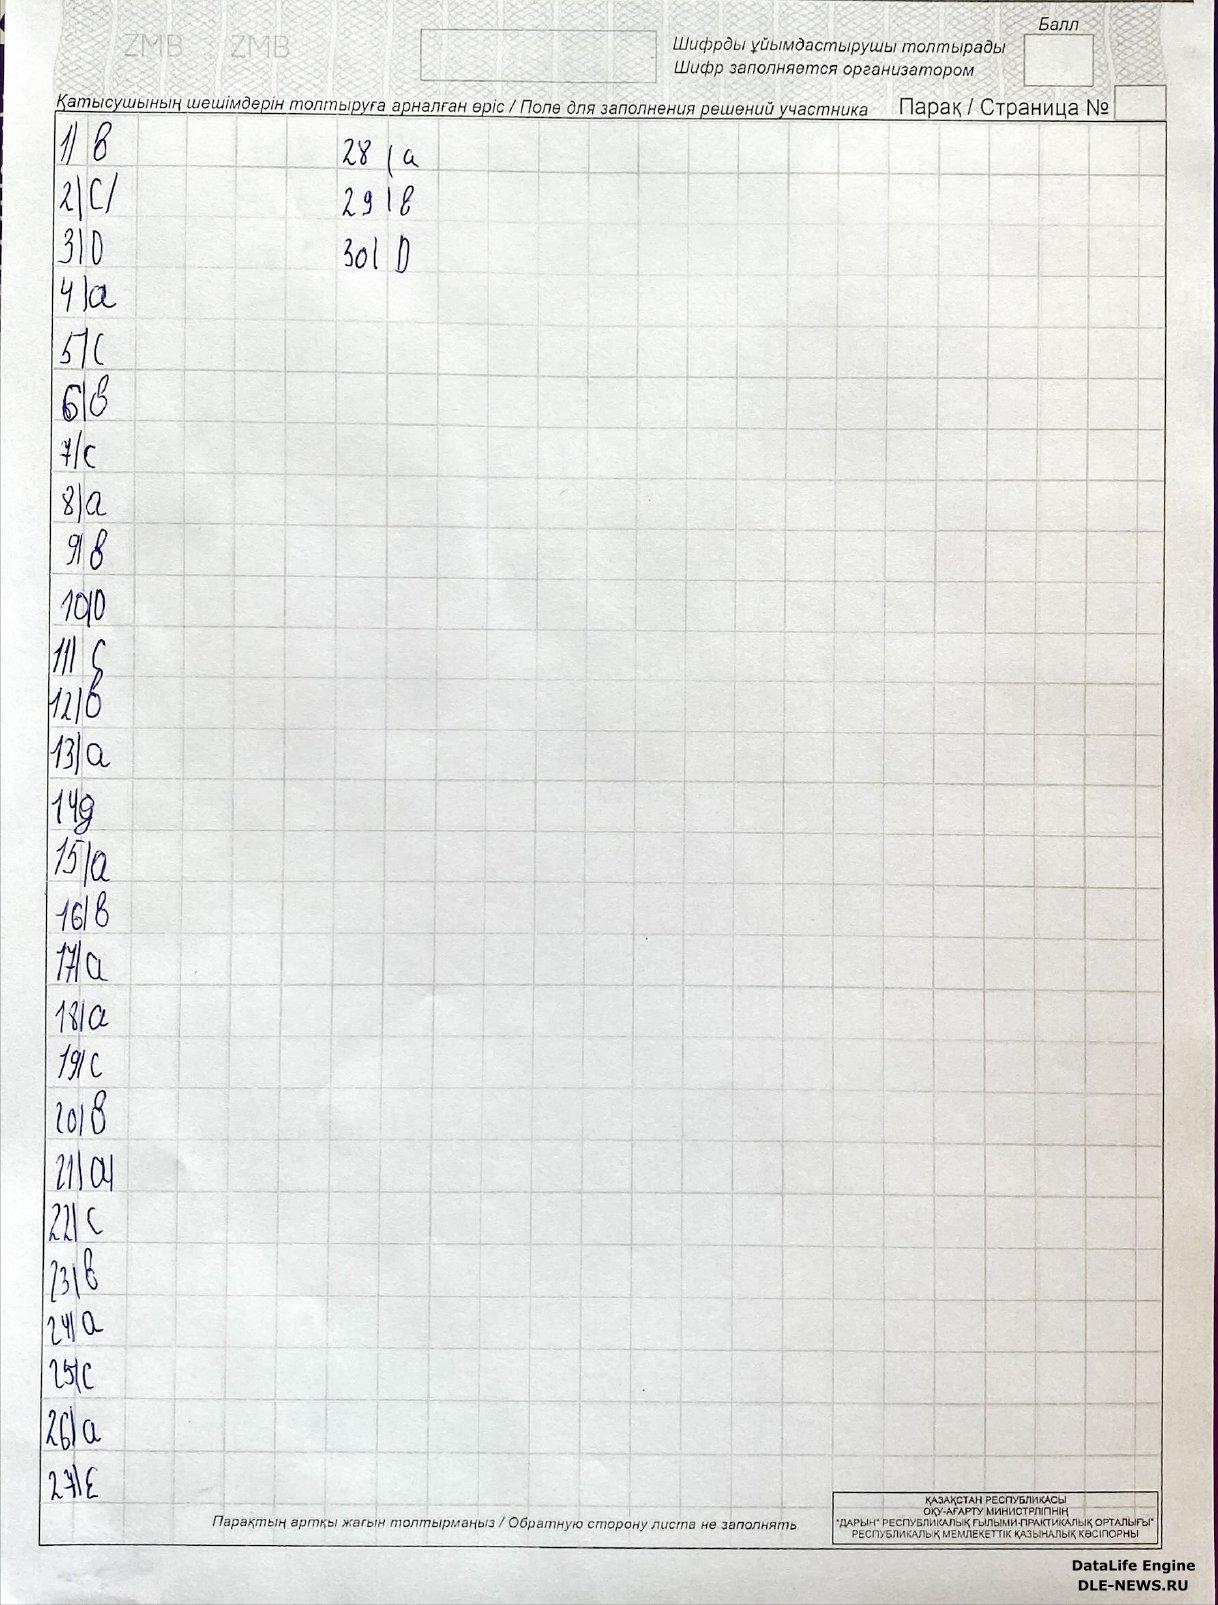 ZMB ZMB
Балл
Шифрды ұйымдастырушы толтырады
Шифр заполняется организатором
Қатысушының шешімдерін толтыруға арналған өріс / Поле для заполнения решений участника
Парақ / Страница №
1) в
2) С/
3) D
4) а
5) С
6) в
7) с
8) а
9) в
10) D
11) С
12) в
13) а
14 д
15) а
16) в
17) а
18) а
19) с
20) в
21) а
22) с
23) в
24) а
25) с
26) а
27) Е
28) а
29) в
30) D
Парақтың артқы жағын толтырмаңыз / Обратную сторону листа не заполнять
ҚАЗАҚСТАН РЕСПУБЛИКАСЫ
ОҚУ-АҒАРТУ МИНИСТРЛІГІНІҢ
"ДАРЫН" РЕСПУБЛИКАЛЫҚ ҒЫЛЫМИ-ПРАКТИКАЛЫҚ ОРТАЛЫҒЫ"
РЕСПУБЛИКАЛЫҚ МЕМЛЕКЕТТІК ҚАЗЫНАЛЫҚ КӘСІПОРНЫ
DataLife Engine
DLE-NEWS.RU